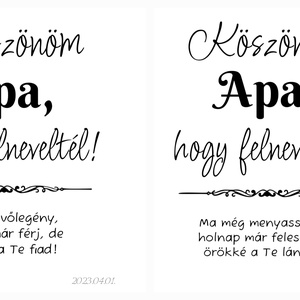 szönöm
pa,
lneveltél!
vőlegény,
ár férj, de
a Te fiad!
2023.04.01.
Köszön
Apa
hogy felnev
Ma még menyass
holnap már feles
örökké a Te lán